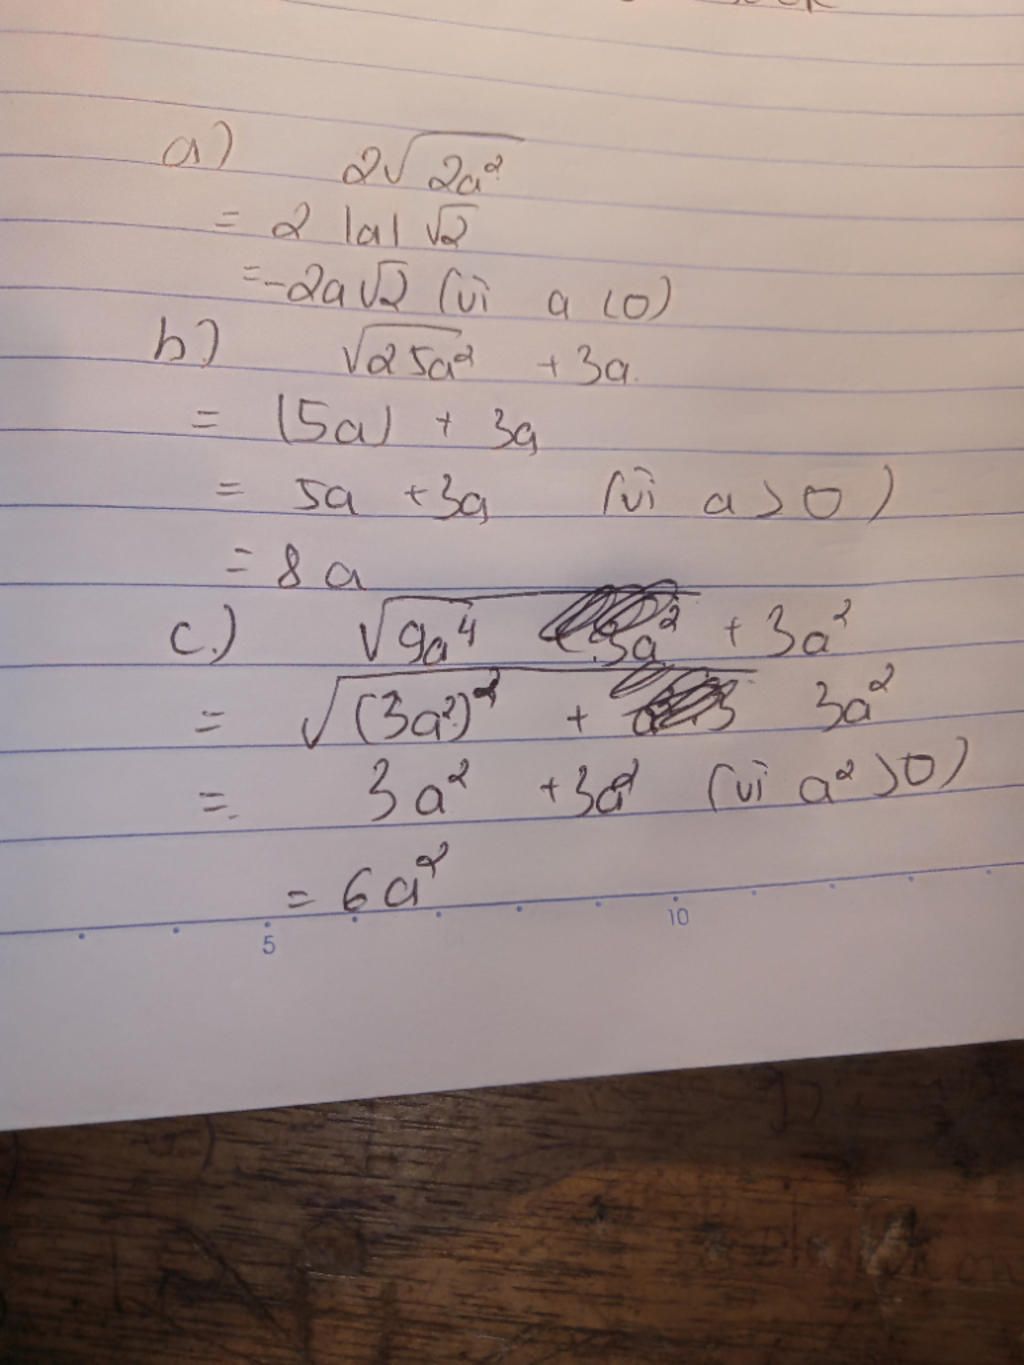 a) 2√2a²
= 2 |a| √2
= -2a√2 (vì a < 0)
b) √25a² + 3a
= |5a| + 3a
= 5a + 3a (vì a > 0)
= 8a
c.) √9a⁴ + 3a²
= √(3a²)² + 3a²
= 3a² + 3a² (vì a² > 0)
= 6a²
5 10